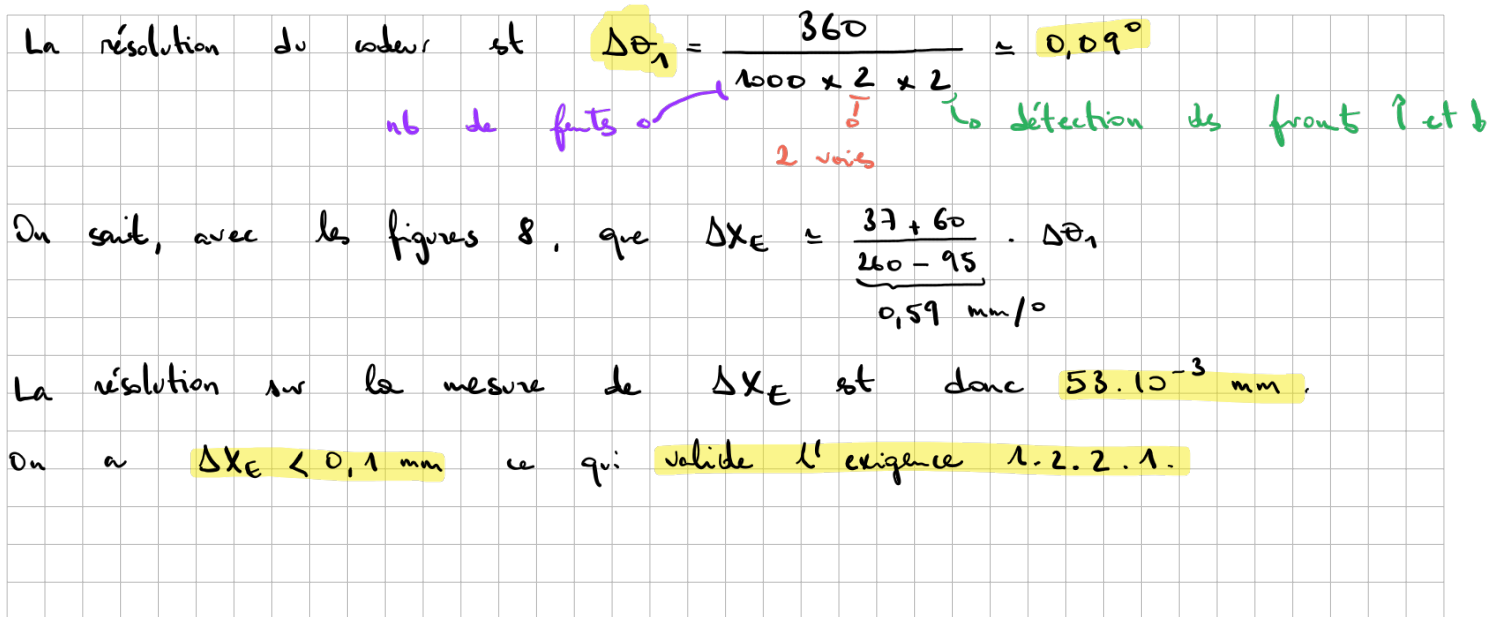 La résolution du codeur est Δθ₁ = 360 / (1000 × 2 × 2) ≃ 0,09°
nb de fentes
2 voies
détection des fronts ↑ et ↓
On sait, avec les figures 8, que ΔX_E ≃ (37 + 60) / (260 - 95) · Δθ₁
0,59 mm/°
La résolution sur la mesure de ΔX_E est donc 53.10⁻³ mm.
On a ΔX_E < 0,1 mm ce qui valide l'exigence 1.2.2.1.